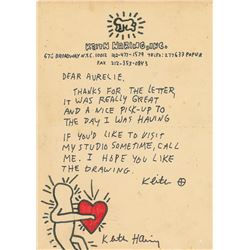 KEITH HARING, INC.
676 BROADWAY N.Y.C. 10012 212-477-1579 TELEX: 277633 POPUR
FAX 212-353-0843
DEAR AURELIE,
THANKS FOR THE LETTER,
IT WAS REALLY GREAT
AND A NICE PICK-UP TO
THE DAY I WAS HAVING
IF YOU'D LIKE TO VISIT
MY STUDIO SOMETIME, CALL
ME. I HOPE YOU LIKE
THE DRAWING.
Keith
Keith Haring